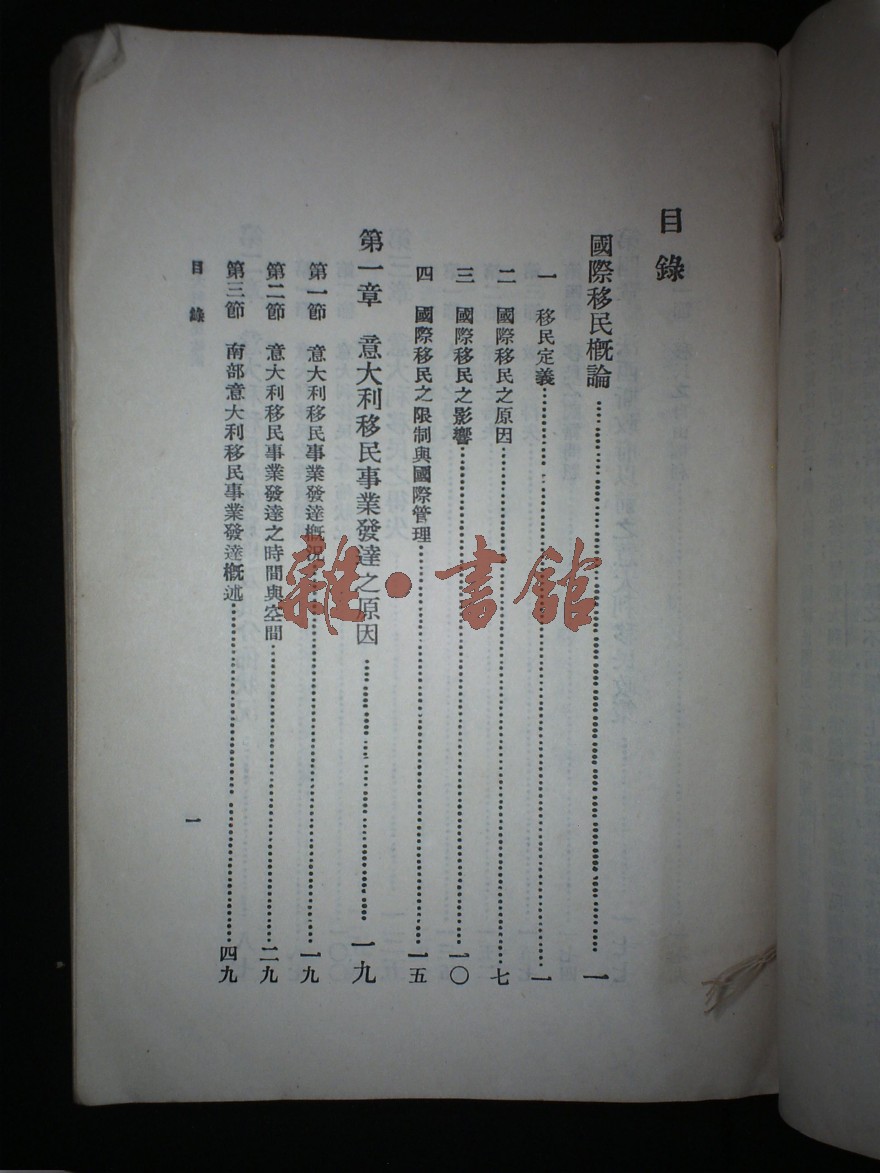 目錄
國際移民概論……一
一 移民定義……一
二 國際移民之原因……七
三 國際移民之影響……一〇
四 國際移民之限制與國際管理……一五
第一章 意大利移民事業發達之原因……一九
第一節 意大利移民事業發達概況……一九
第二節 意大利移民事業發達之時間與空間……二九
第三節 南部意大利移民事業發達概述……四九
目錄
一
雜·書館